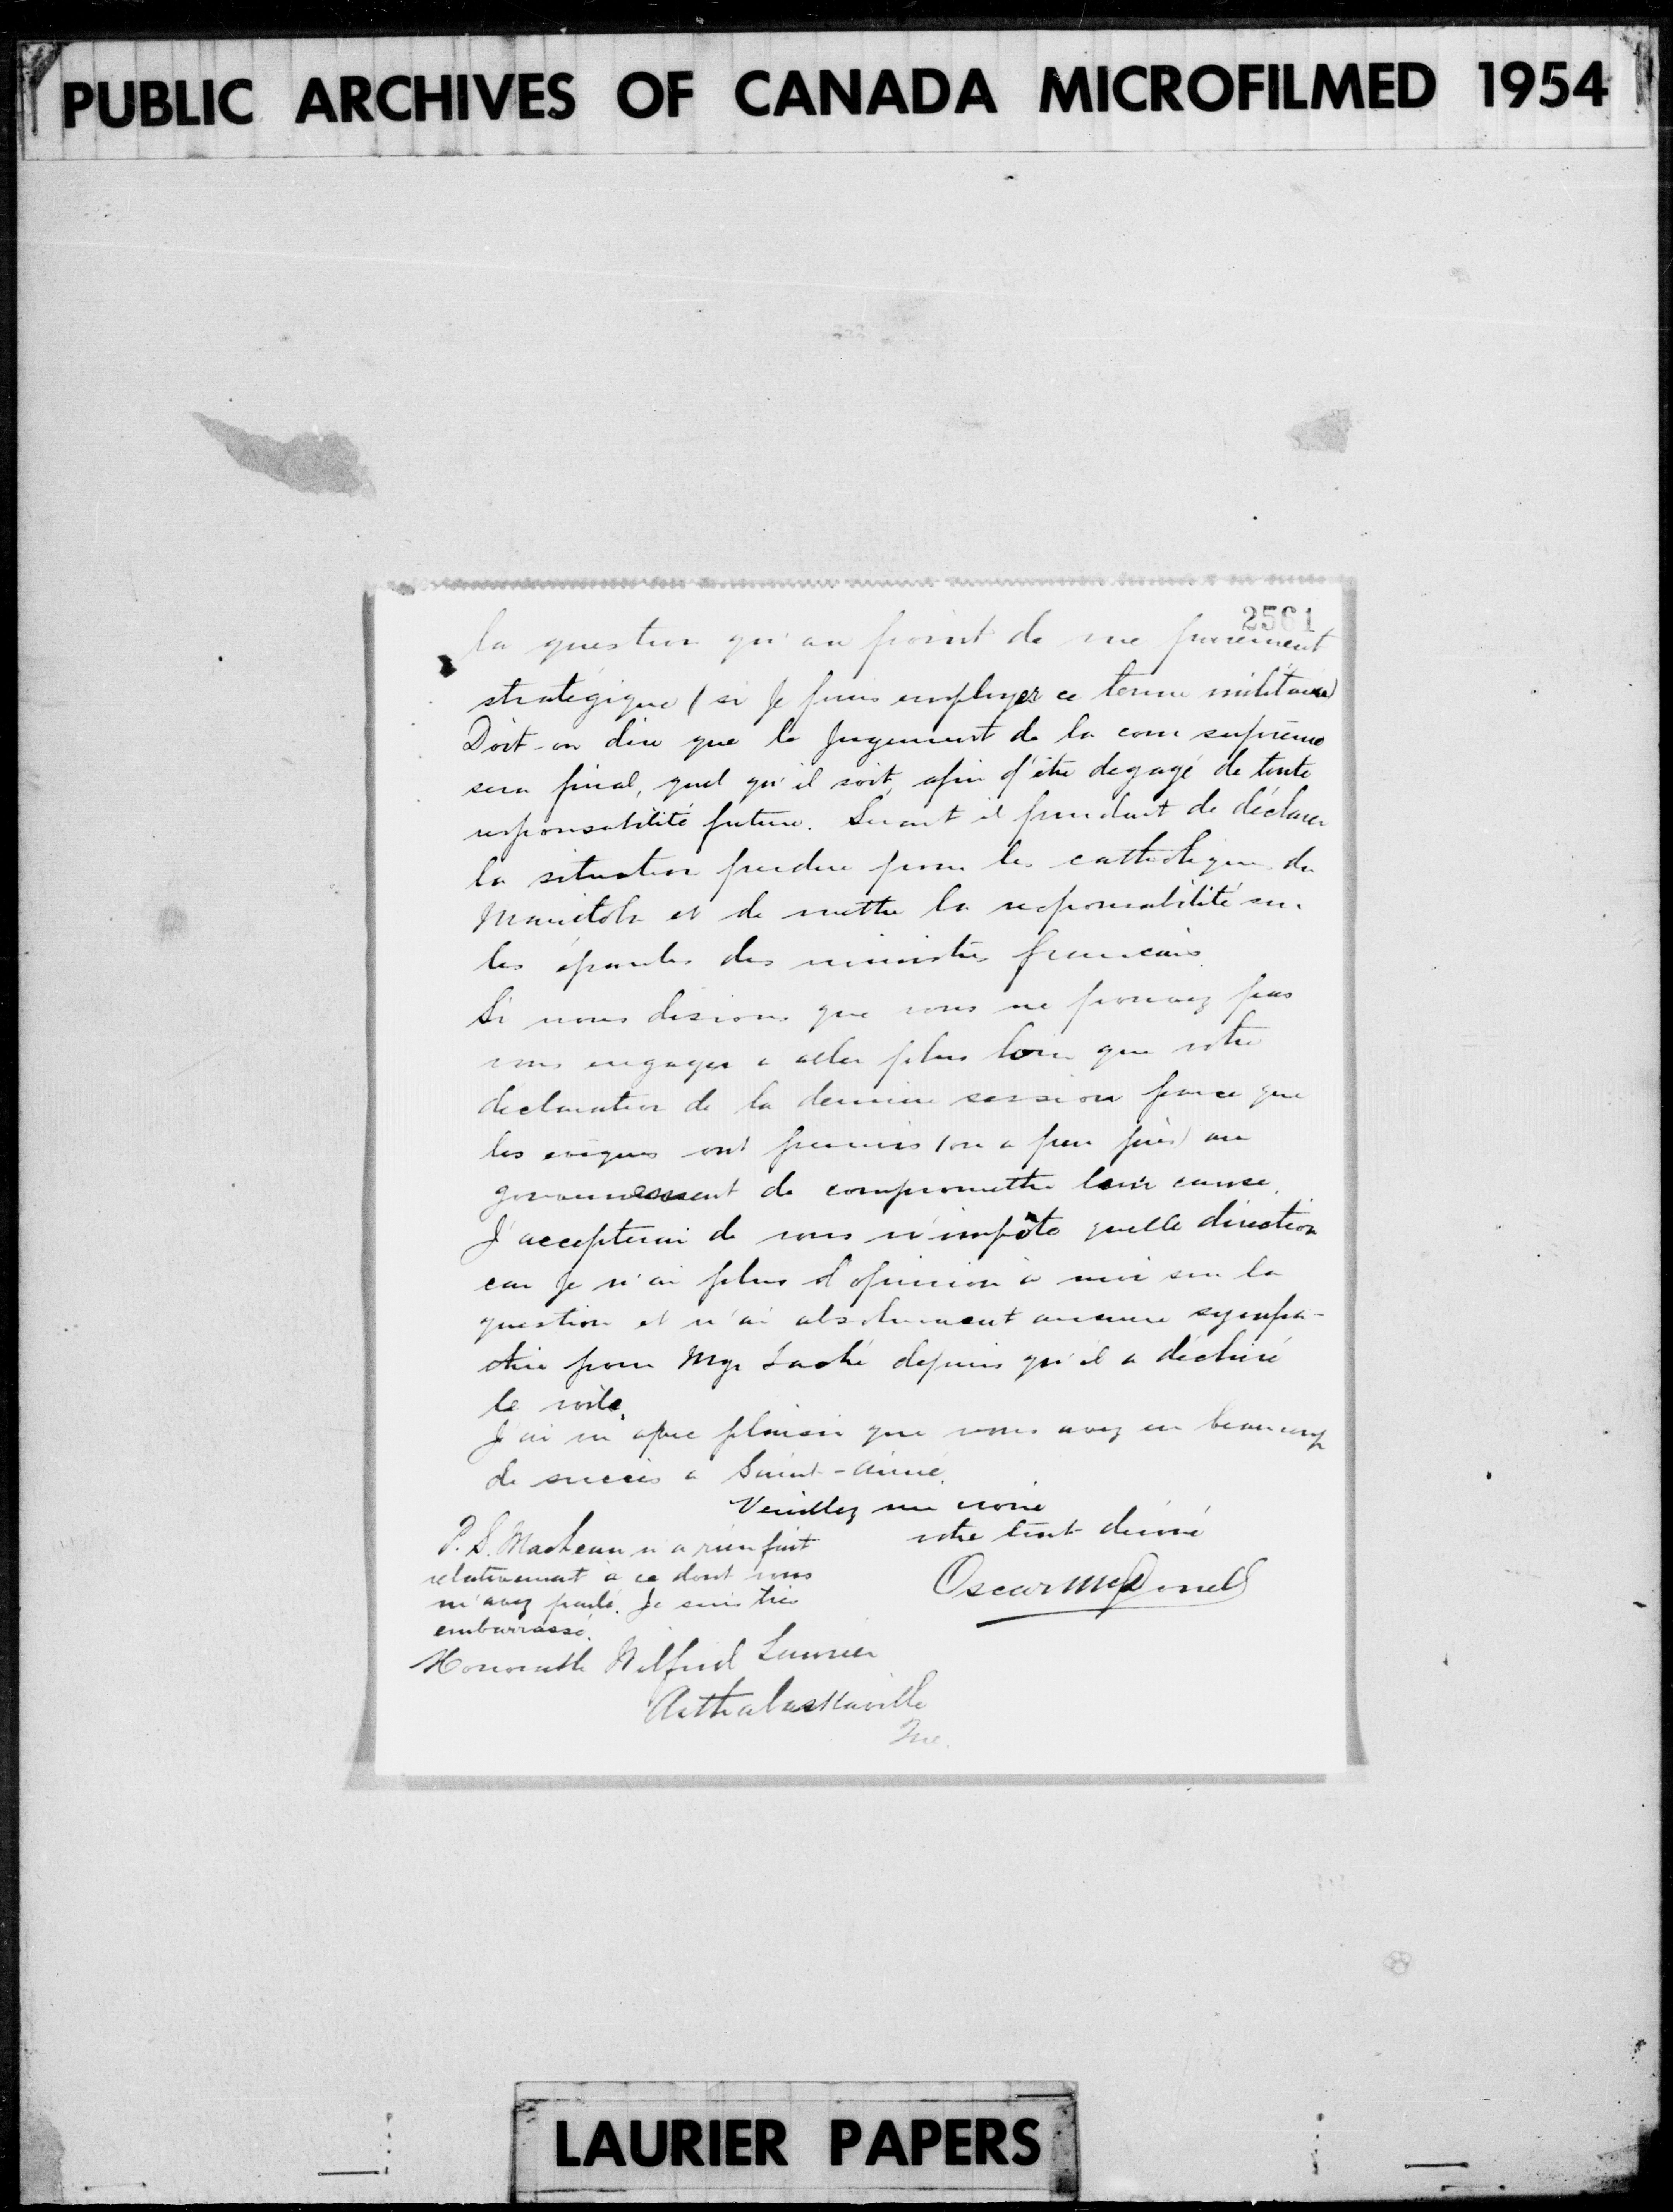 PUBLIC ARCHIVES OF CANADA MICROFILMED 1954
2561
la question qu'au point de vue purement
stratégique (si je puis employer ce terme militaire)
Doit-on dire que le jugement de la cour suprême
sera final, quel qu'il soit, afin d'être degagé de toute
responsabilité future. Serait il prudent de déclarer
la situation perdue pour les catholiques du
Manitoba et de mettre la responsabilité sur
les épaules des ministres francais
Si nous disions que vous ne pouvez pas
vous engager a aller plus loin que votre
déclaration de la derniere session parce que
les evêques ont permis (ou a peu près) au
gouvernement de compromettre leur cause.
J'accepterai de vous n'impôte quelle direction
car je n'ai plus d'opinion à moi sur la
question et n'ai absolument aucune sympa-
thie pour Mgr Taché depuis qu'il a déchiré
le voile.
J'ai vu avec plaisir que vous avez eu beaucoup
de succès a Saint-Aimé.
Veuillez me croire
votre tout dévoué
Oscar McDonell
P. S. n'a rien fait
relativement à ce dont vous
m'avez parlé. Je suis très
embarrassé.
Honorable Wilfrid Laurier
Arthabaskaville
Que.
LAURIER PAPERS